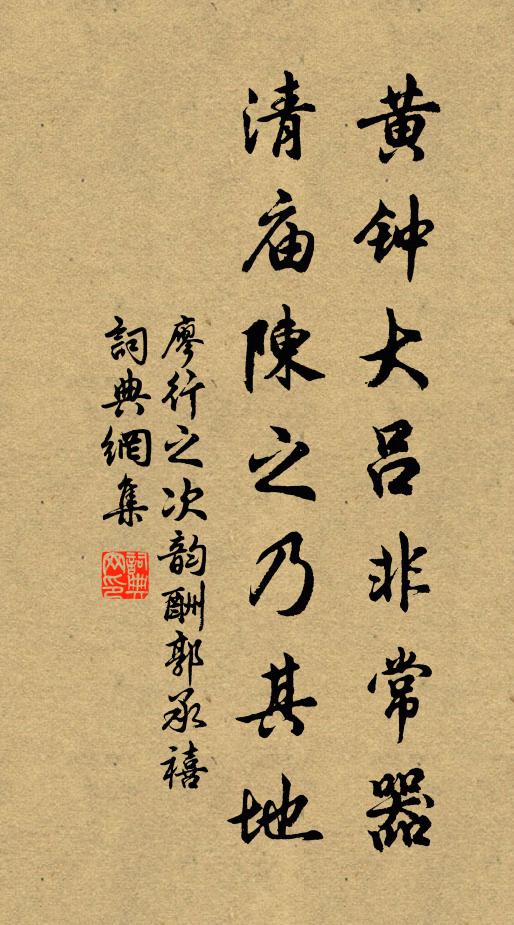 黄钟大吕非常器
清庙陳之乃其地
廖行之次韵酬郭承禧
詞典網集
詞典网印